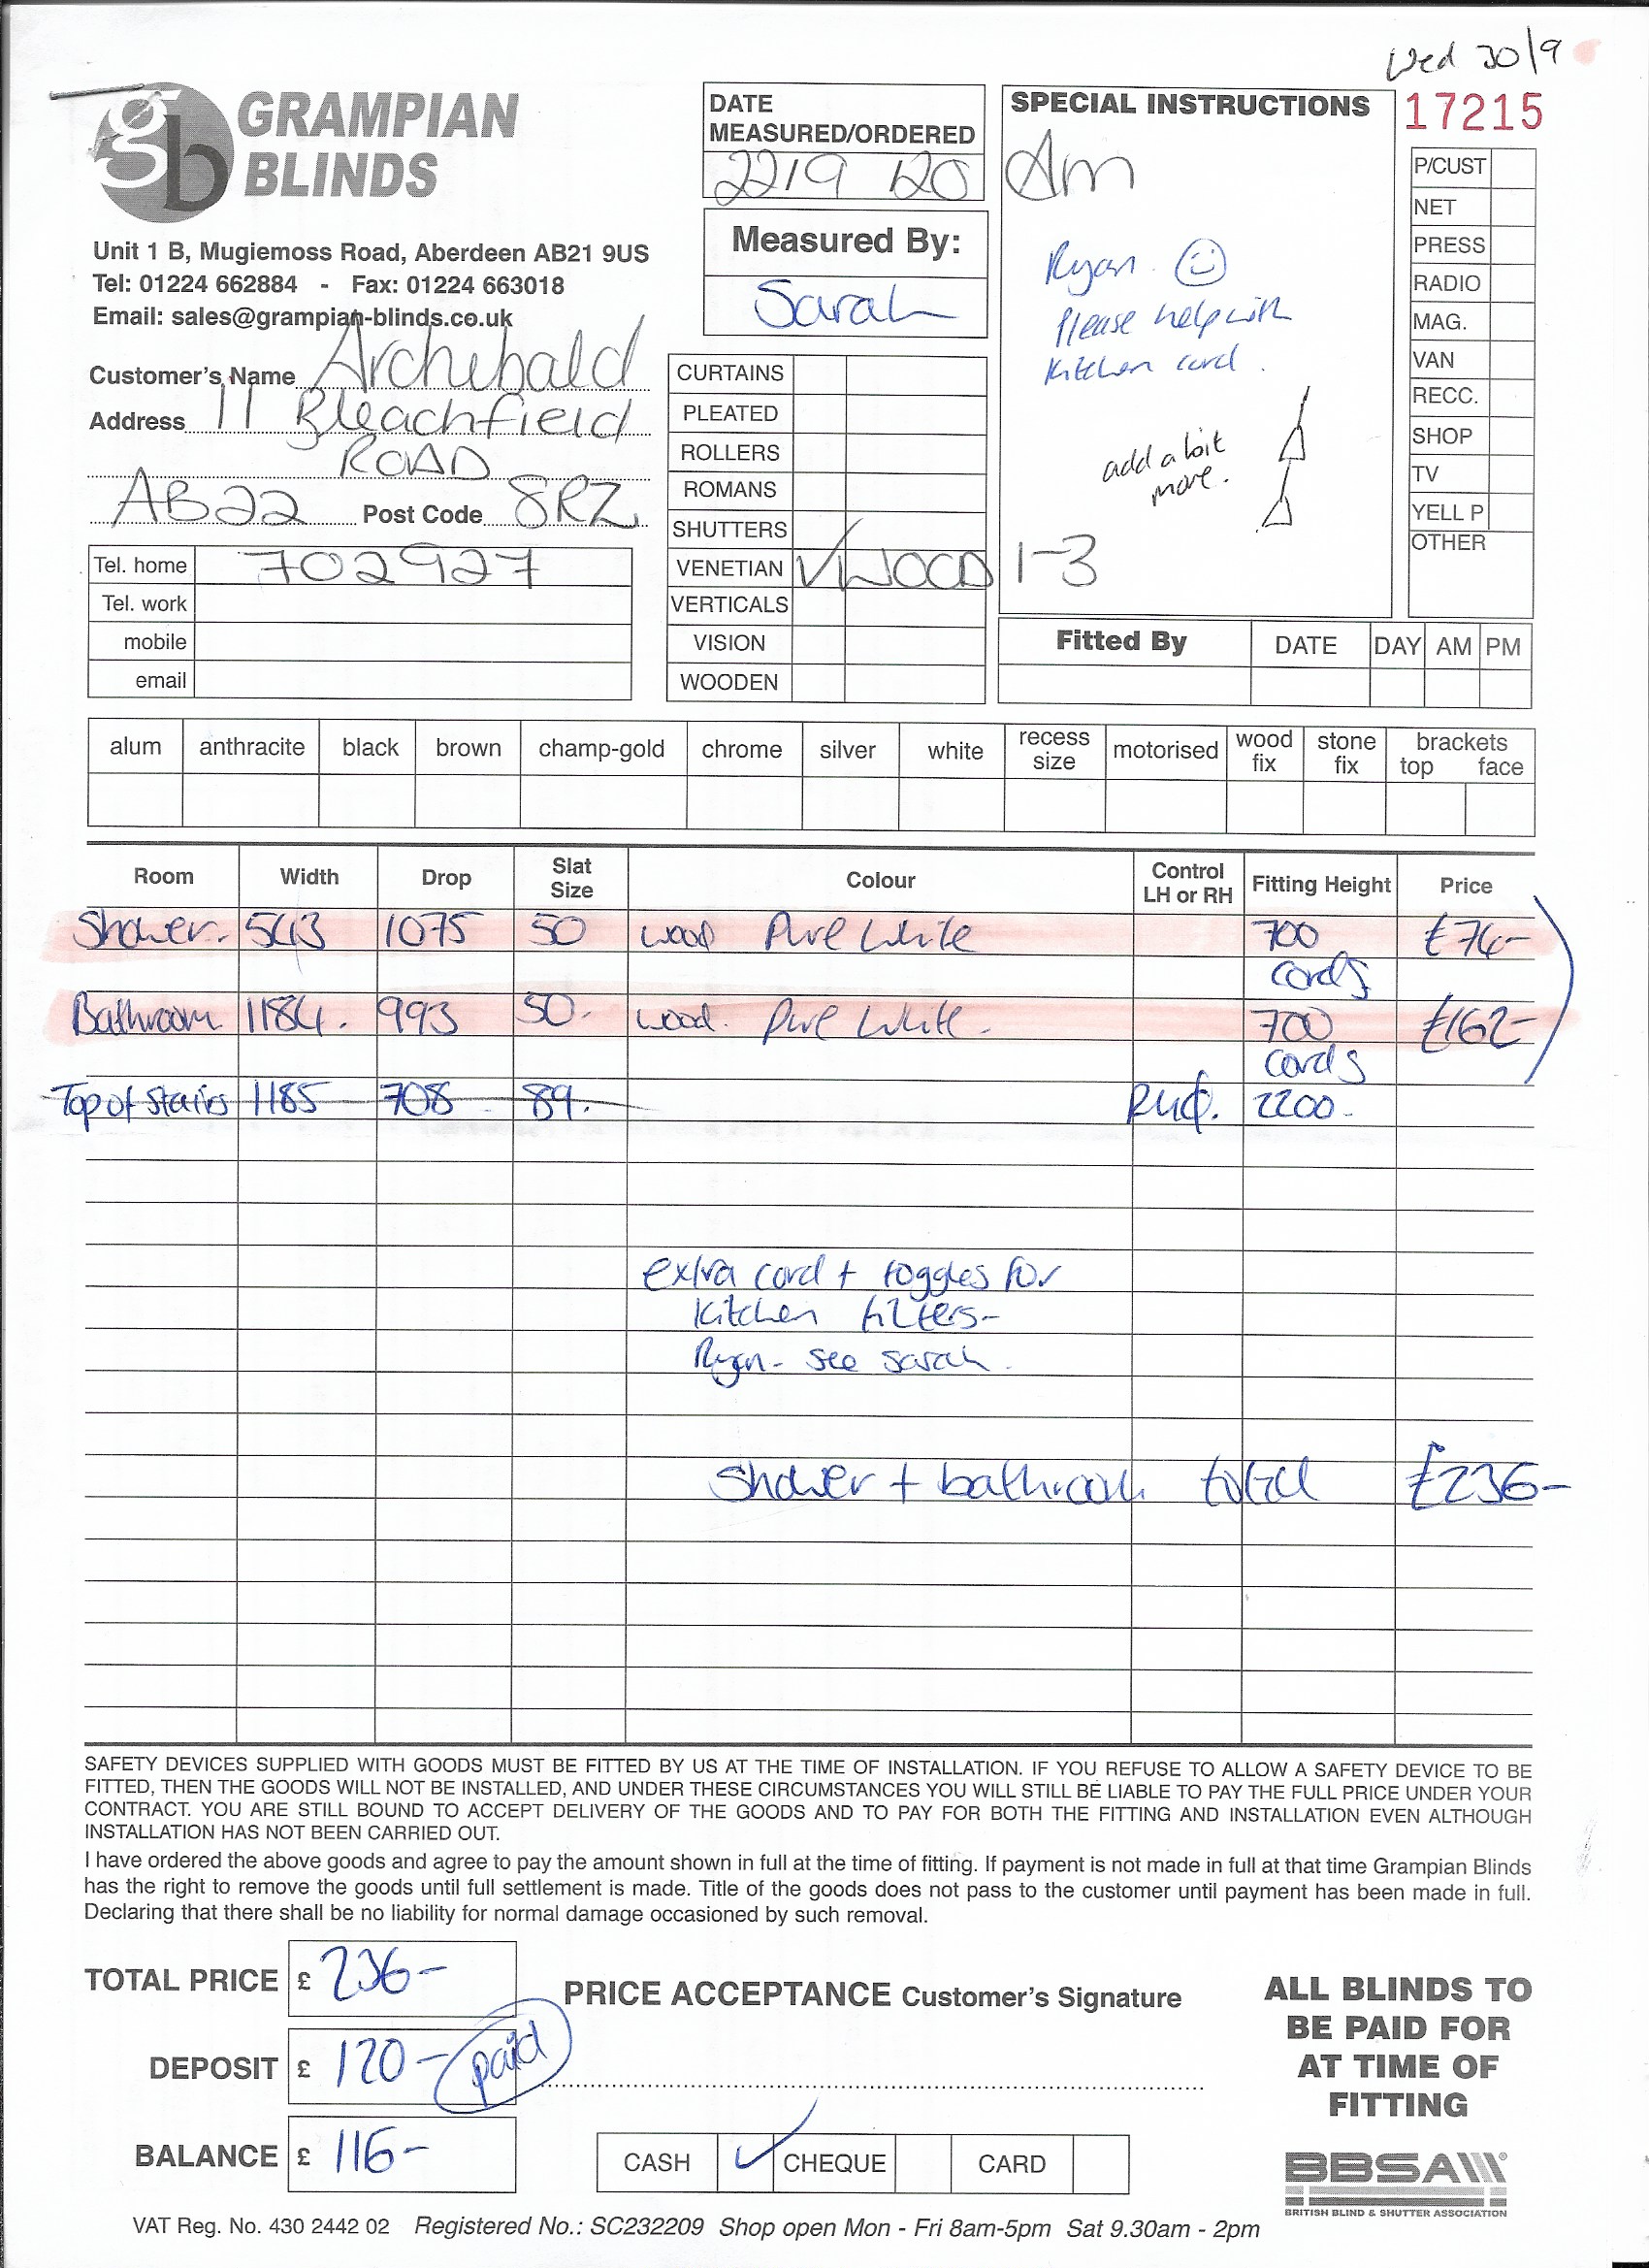 Wed 30/9
GRAMPIAN
BLINDS
Unit 1 B, Mugiemoss Road, Aberdeen AB21 9US
Tel: 01224 662884 - Fax: 01224 663018
Email: sales@grampian-blinds.co.uk
Customer's Name Archibald
Address 11 Bleachfield
ROAD
AB22 Post Code 8RZ
Tel. home 702927
Tel. work
mobile
email
DATE
MEASURED/ORDERED
22/9/20
Measured By:
Sarah
CURTAINS
PLEATED
ROLLERS
ROMANS
SHUTTERS
VENETIAN ✓ WOOD
VERTICALS
VISION
WOODEN
SPECIAL INSTRUCTIONS
Am
Ryan ☺
Please help with
Kitchen cord.
add a bit
more.
1-3
17215
P/CUST
NET
PRESS
RADIO
MAG.
VAN
RECC.
SHOP
TV
YELL P
OTHER
Fitted By DATE DAY AM PM
alum anthracite black brown champ-gold chrome silver white recess size motorised wood fix stone fix brackets top face
Room Width Drop Slat Size Colour Control LH or RH Fitting Height Price
Shower. 543 1075 50 wood Pure White 700 £74-
cords
Bathroom 1184. 993 50. wood. Pure White. 700 £162-
cords
Top of Stairs 1185 708 89. 2200.
extra cord + toggles for
Kitchen
Ryan - see Sarah.
Shower + bathroom total £236-
SAFETY DEVICES SUPPLIED WITH GOODS MUST BE FITTED BY US AT THE TIME OF INSTALLATION. IF YOU REFUSE TO ALLOW A SAFETY DEVICE TO BE
FITTED, THEN THE GOODS WILL NOT BE INSTALLED, AND UNDER THESE CIRCUMSTANCES YOU WILL STILL BE LIABLE TO PAY THE FULL PRICE UNDER YOUR
CONTRACT. YOU ARE STILL BOUND TO ACCEPT DELIVERY OF THE GOODS AND TO PAY FOR BOTH THE FITTING AND INSTALLATION EVEN ALTHOUGH
INSTALLATION HAS NOT BEEN CARRIED OUT.
I have ordered the above goods and agree to pay the amount shown in full at the time of fitting. If payment is not made in full at that time Grampian Blinds
has the right to remove the goods until full settlement is made. Title of the goods does not pass to the customer until payment has been made in full.
Declaring that there shall be no liability for normal damage occasioned by such removal.
TOTAL PRICE £ 236-
DEPOSIT £ 120- paid
BALANCE £ 116-
PRICE ACCEPTANCE Customer's Signature
CASH ✓ CHEQUE CARD
ALL BLINDS TO
BE PAID FOR
AT TIME OF
FITTING
BBSA
BRITISH BLIND & SHUTTER ASSOCIATION
VAT Reg. No. 430 2442 02 Registered No.: SC232209 Shop open Mon - Fri 8am-5pm Sat 9.30am - 2pm